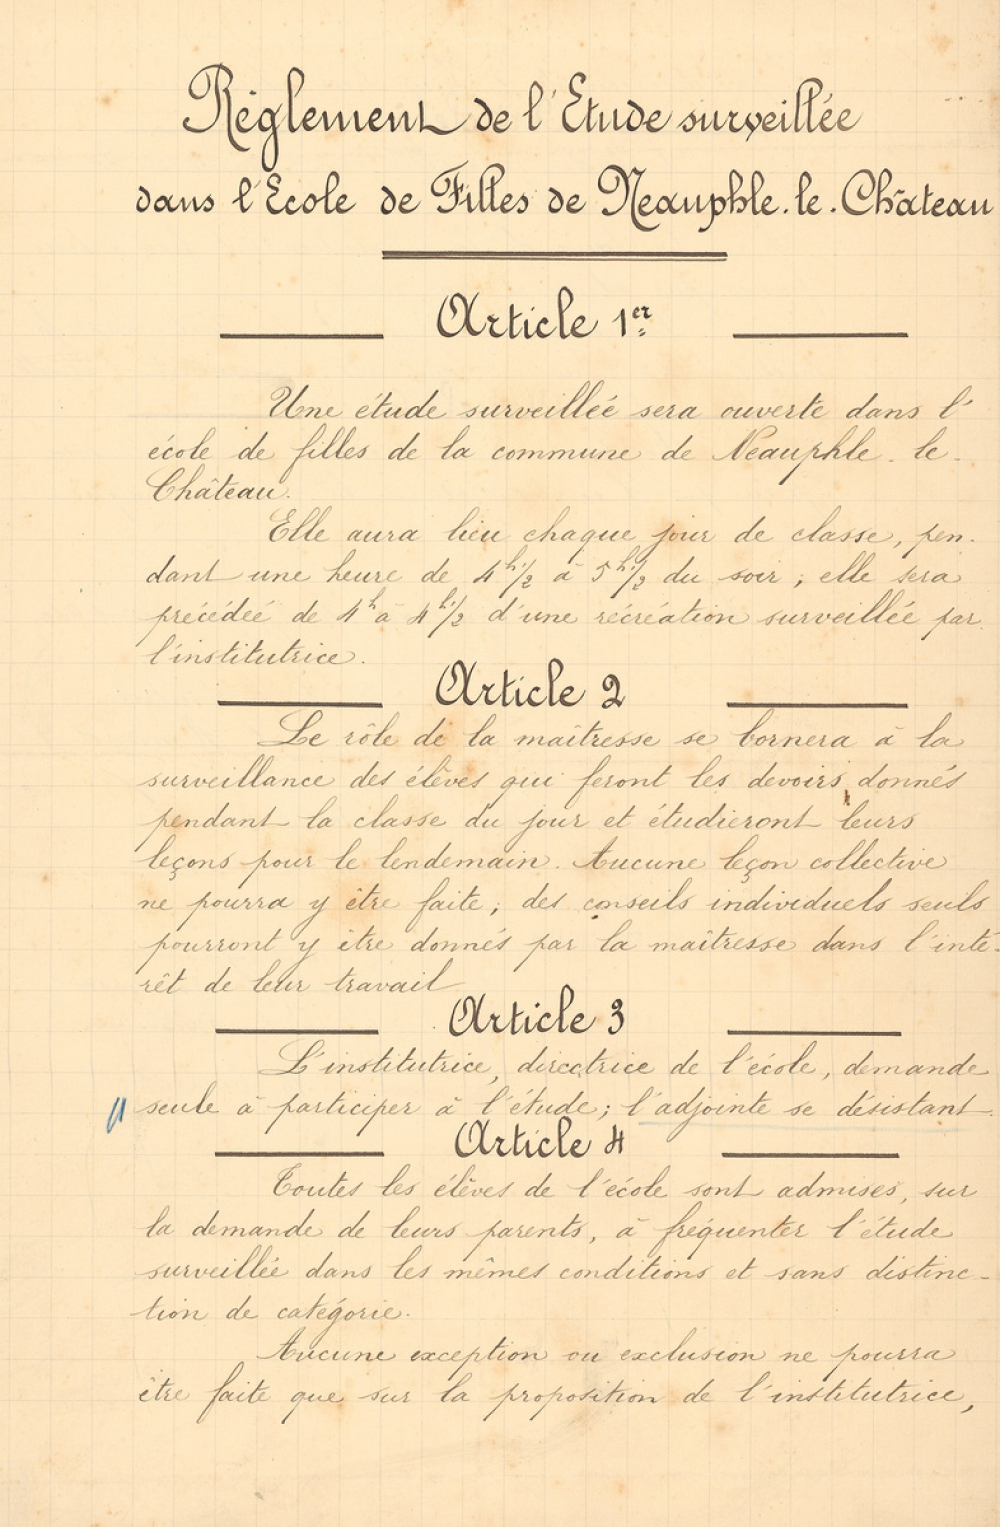 Règlement de l'Etude surveillée
dans l'Ecole de Filles de Neauphle-le-Château
Article 1er
Une étude surveillée sera ouverte dans l'
école de filles de la commune de Neauphle-le-
Château.
Elle aura lieu chaque jour de classe, pen-
dant une heure de 4h 1/2 à 5h 1/2 du soir ; elle sera
précédée de 4h à 4h 1/2 d'une récréation surveillée par
l'institutrice.
Article 2
Le rôle de la maîtresse se bornera à la
surveillance des élèves qui feront les devoirs donnés
pendant la classe du jour et étudieront leurs
leçons pour le lendemain. Aucune leçon collective
ne pourra y être faite ; des conseils individuels seuls
pourront y être donnés par la maîtresse dans l'inté-
rêt de leur travail
Article 3
L'institutrice, directrice de l'école, demande
seule à participer à l'étude ; l'adjointe se désistant.
Article 4
Toutes les élèves de l'école sont admises, sur
la demande de leurs parents, à fréquenter l'étude
surveillée dans les mêmes conditions et sans distinc-
tion de catégorie.
Aucune exception ou exclusion ne pourra
être faite que sur la proposition de l'institutrice,